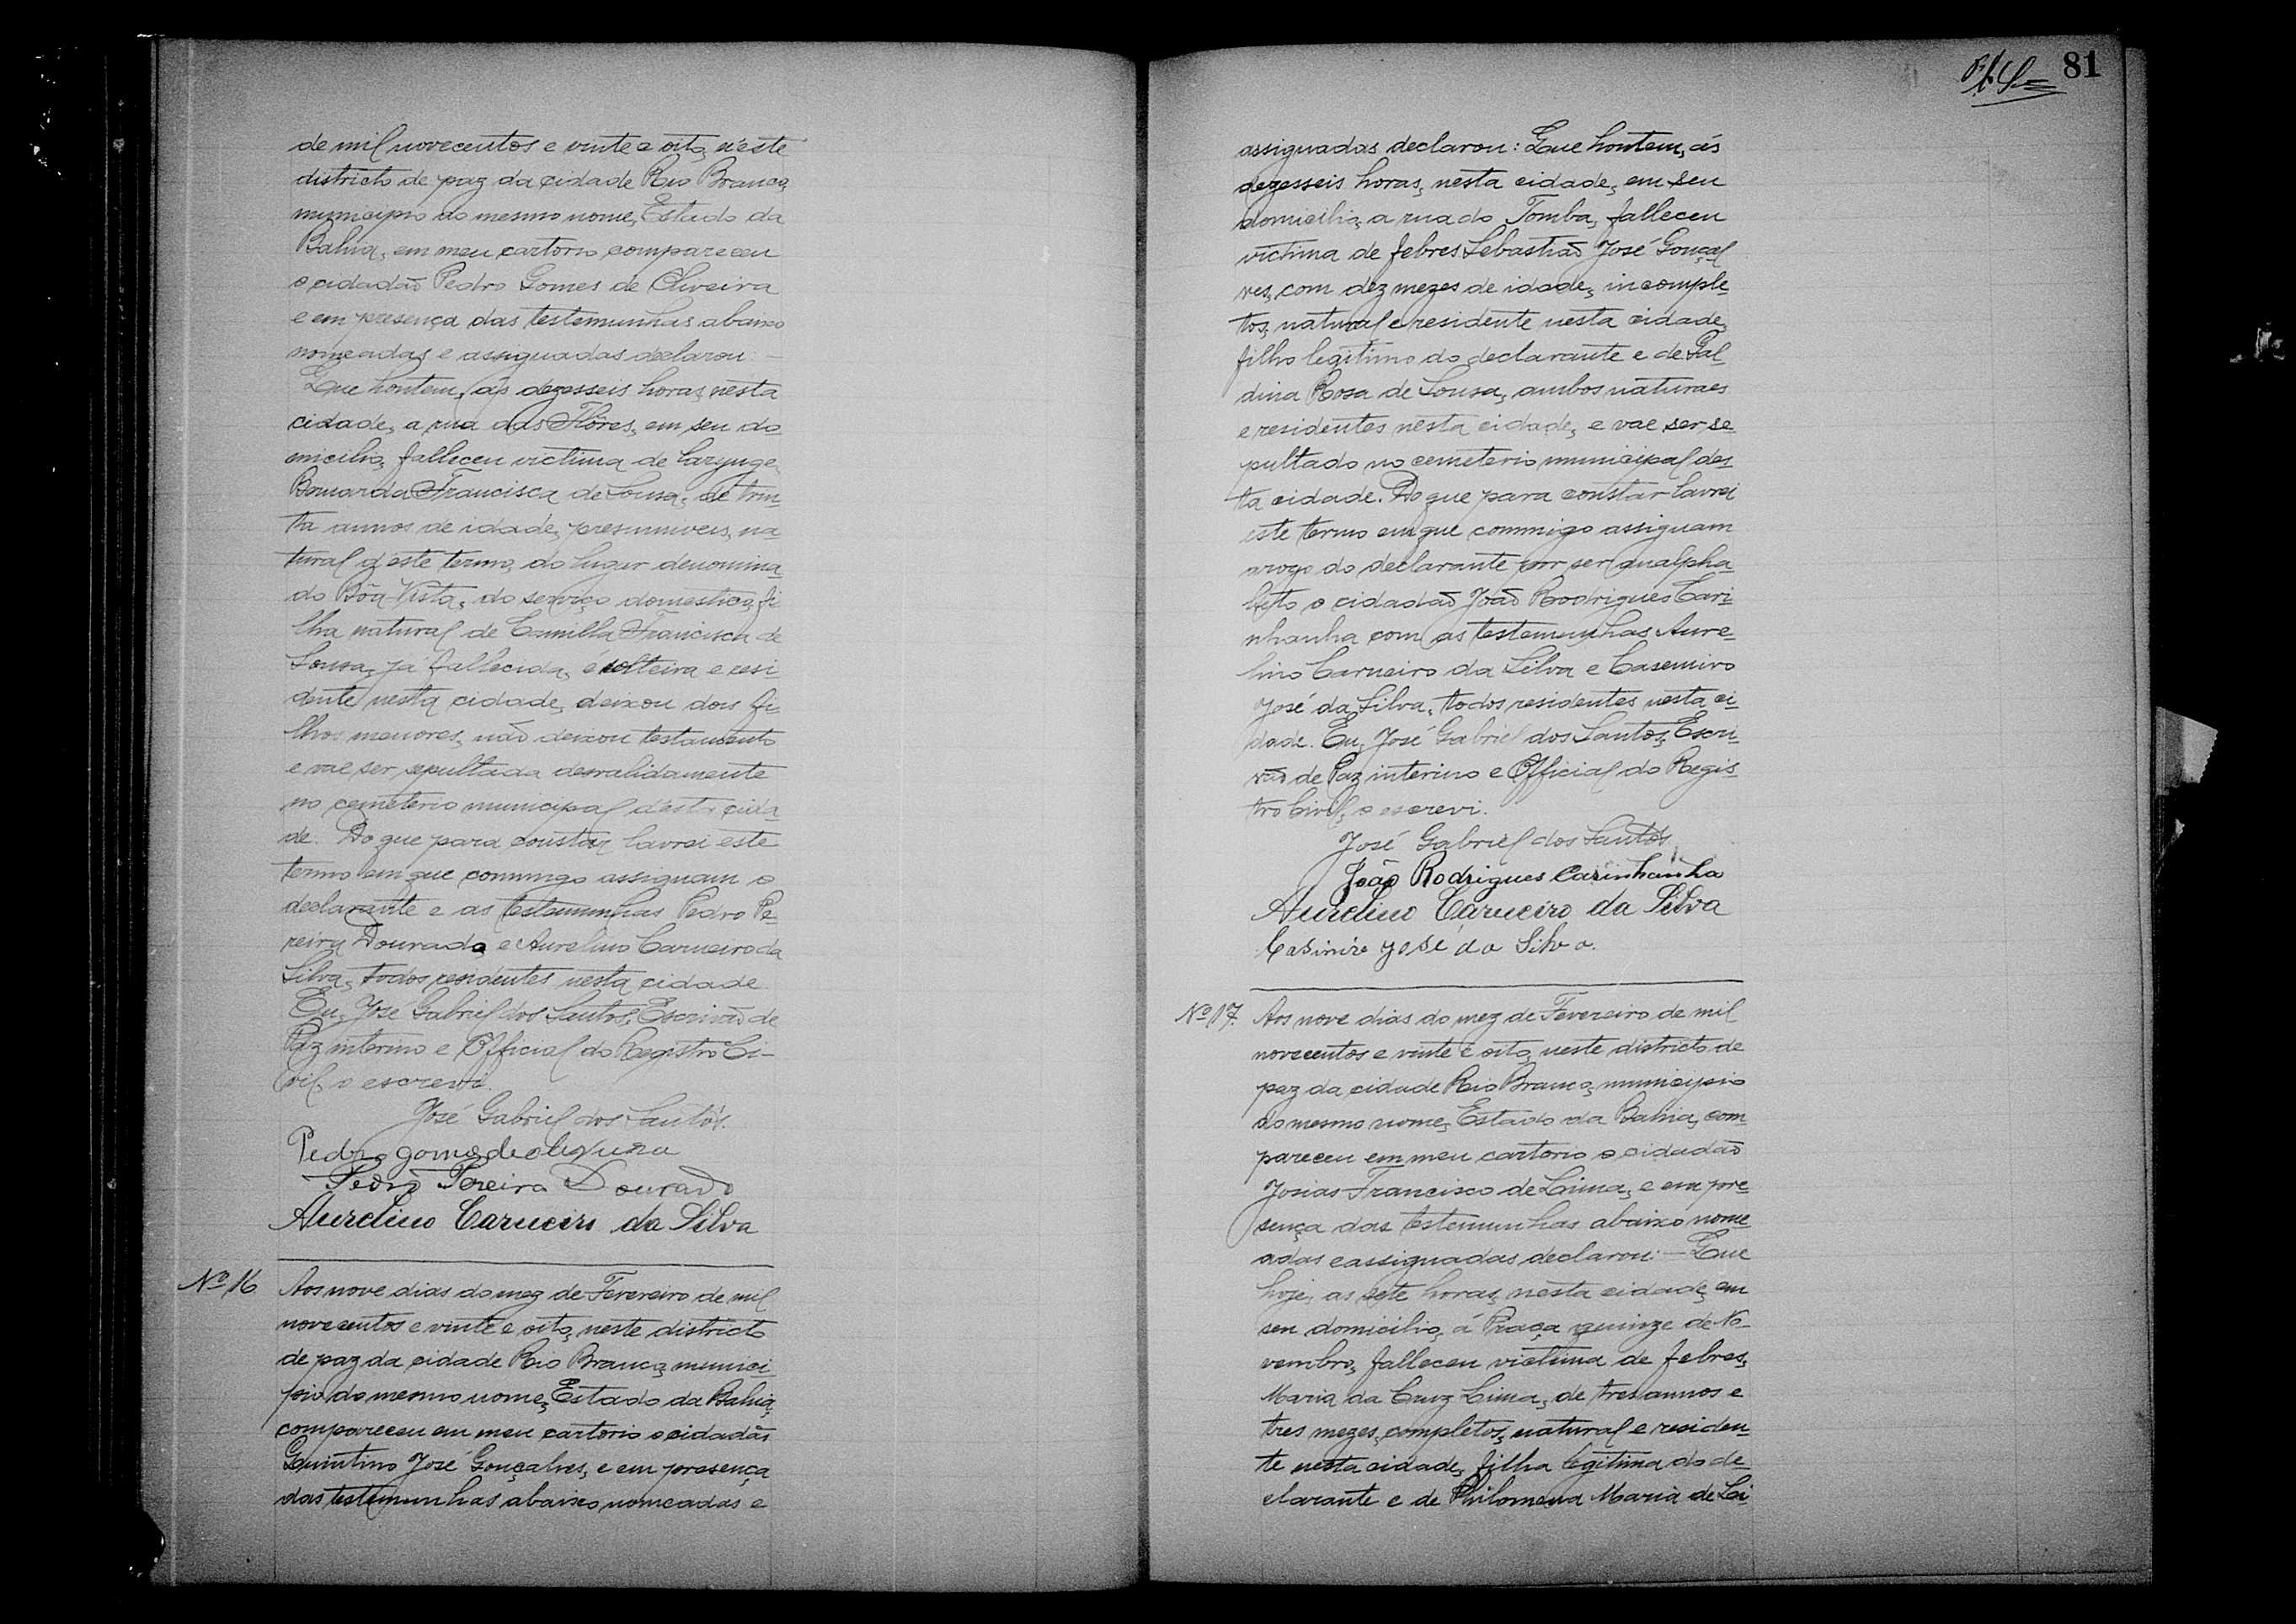 de mil novecentos e vinte e oito, n'este
districto de paz da cidade Rio Branco,
municipio do mesmo nome, Estado da
Bahia, em meu cartorio compareceu
o cidadão Pedro Gomes de Oliveira
e em presença das testemunhas abaixo
nomeadas e assignadas declarou: —
Que hontem, as dezesseis horas, nesta
cidade, a rua das Flôres, em seu do-
micilio, falleceu victima de larynge,
Bernarda Francisca de Sousa, de trin-
ta annos de idade, presumiveis, na-
tural d'este termo, do lugar denomina-
do Bôa-Vista, do serviço domestico, fi-
lha natural de Camilla Francisca de
Sousa, já fallecida, é solteira e resi-
dente nesta cidade, deixou dous fi-
lhos menores, não deixou testamento
e vae ser sepultada desvalidamente
no cemeterio municipal d'esta cida-
de. Do que para constar lavrei este
termo em que commigo assignam o
declarante e as testemunhas Pedro Pe-
reira Dourado e Aurelino Carneiro da
Silva, todos residentes nesta cidade
Eu, José Gabriel dos Santos, Escrivão de
Paz interino e Official do Registro Ci-
vil, o escrevi.
José Gabriel dos Santos.
Pedro gomes de olivura
Pedro Pereira Dourado
Aurelino Carneiro da Silva
Nº 16 Aos nove dias do mez de Fevereiro de mil
novecentos e vinte e oito, neste districto
de paz da cidade Rio Branco, munici-
pio do mesmo nome, Estado da Bahia,
compareceu em meu cartorio o cidadão
Quintino José Gonçalves, e em presença
das testemunhas abaixo nomeadas e
81
assignadas declarou: Que hontem, ás
dezesseis horas, nesta cidade, em seu
domicilio, a rua do Tomba, falleceu
victima de febres Sebastião José Gonçal-
ves, com dez mezes de idade, incomple-
tos, natural e residente nesta cidade,
filho legitimo do declarante e de Sal-
dina Rosa de Sousa, ambos naturaes
e residentes nesta cidade, e vae ser se-
pultado no cemeterio municipal des-
ta cidade. Do que para constar lavrei
este termo em que commigo assignam
arogo do declarante por ser analpha-
beto o cidadão João Rodrigues Cari-
nhanha com as testemunhas Aure-
lino Carneiro da Silva e Casemiro
José da Silva, todos residentes nesta ci-
dade. Eu, José Gabriel dos Santos, Escri-
vão de Paz interino e Official do Regis-
tro Civil, o escrevi.
José Gabriel dos Santos,
João Rodrigues Carinhanha
Aurelino Carneiro da Silva
Casimiro José da Silva.
Nº 17. Aos nove dias do mez de Fevereiro de mil
novecentos e vinte e oito, neste districto de
paz da cidade Rio Branco, municipio
do mesmo nome, Estado da Bahia, com-
pareceu em meu cartorio o cidadão
Josias Francisco de Lima, e em pre-
sença das testemunhas abaixo nome-
adas e assignadas declarou: — Que
hoje, as sete horas, nesta cidade, em
seu domicilio, á Praça quinze de No-
vembro, falleceu victima de febres,
Maria da Cruz Lima, de tres annos e
tres mezes, completos, natural e residen-
te nesta cidade, filha legitima do de-
clarante e de Philomena Maria de Li-